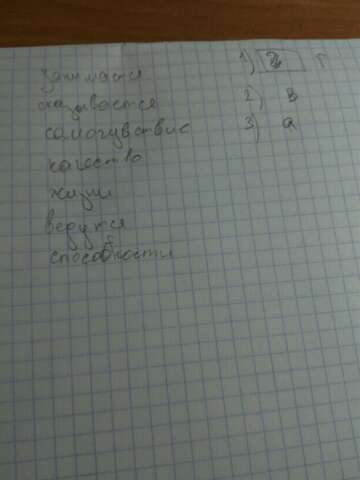 заниматся
сказывается
самочувствие
качество
жизни
ведутся
способности
1) г
2) в
3) а